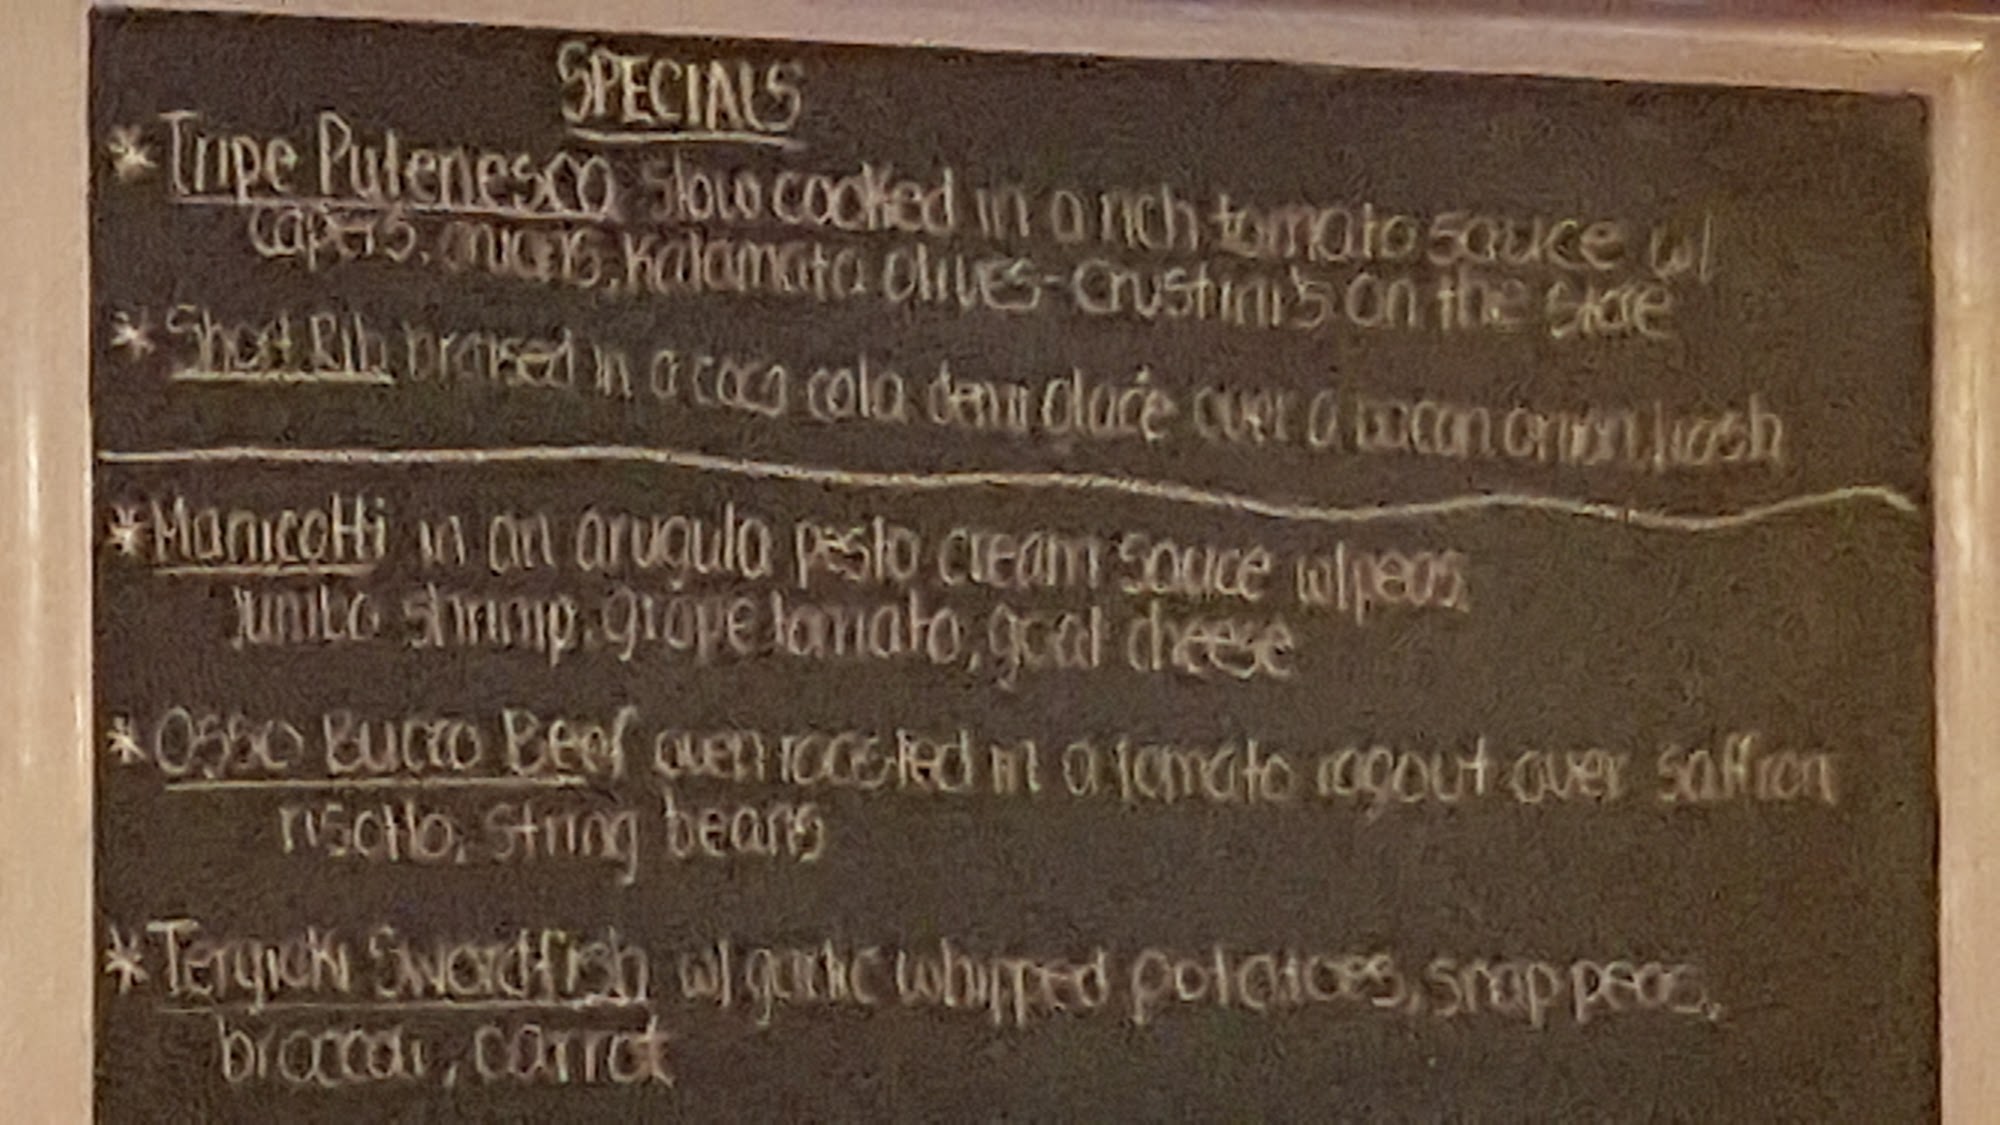 SPECIALS
* Tripe Putenesca slow cooked in a rich tomato sauce w/
capers, onions, kalamata olives - crustini's on the side
* Short Rib braised in a coca cola demi glacé over a bacon onion hash
* Manicotti in an arugula pesto cream sauce w/ peas,
jumbo shrimp, grape tomato, goat cheese
* Osso Bucco Beef oven roasted in a tomato ragout over saffron
risotto, string beans
* Teryicki Swordfish w/ garlic whipped potatoes, snap peas,
broccoli, carrot